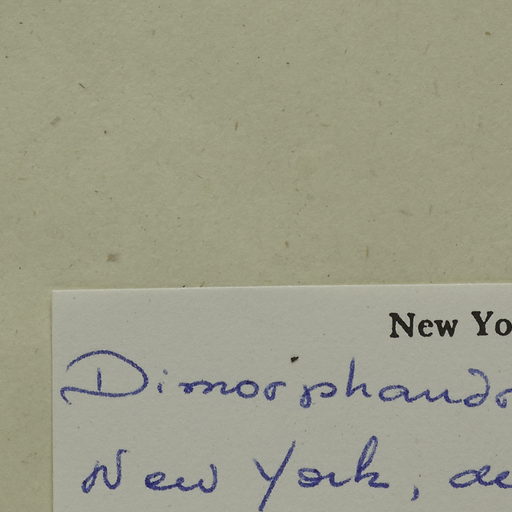 New Yo
Dimorphandr
New York, de